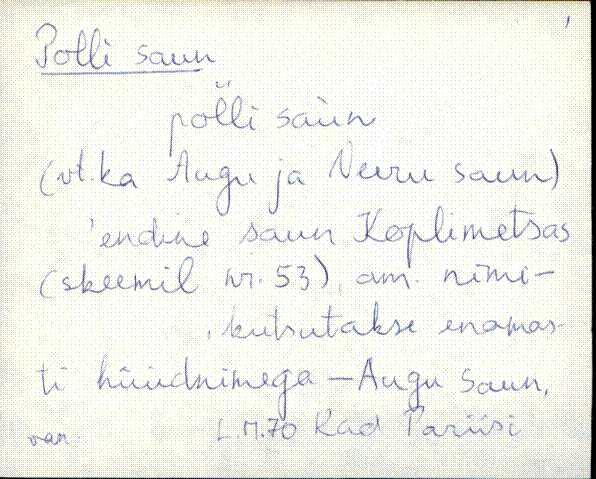 Polli saun
põlli saùn
(vt. ka Augu ja Neeru saun)
'endine saun Koplimetsas
(skeemil nr. 53), am. nimi-
kutsutakse enamas-
ti hüüdnimega - Augu saun.
van. L.M.70 Kad Pariisi